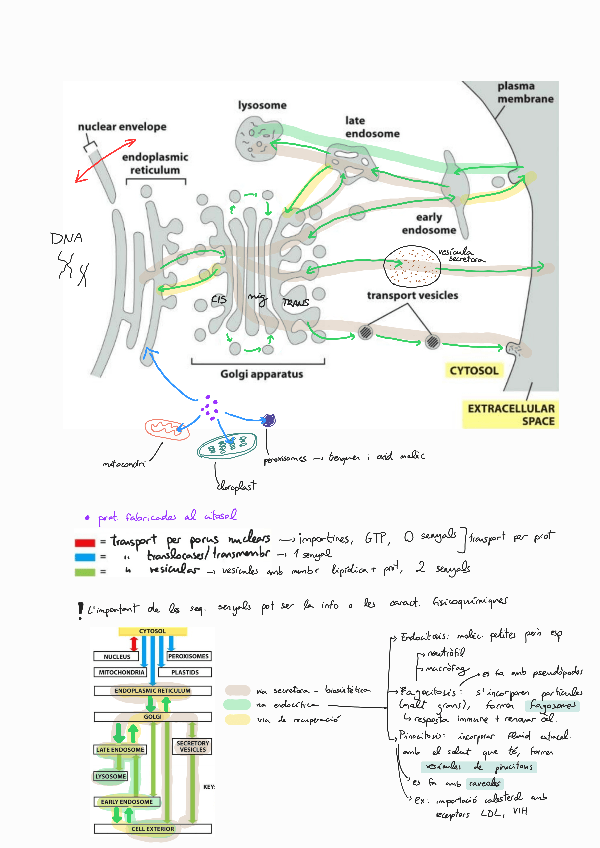 plasma
membrane
lysosome
late
endosome
nuclear envelope
endoplasmic
reticulum
early
endosome
DNA
vesícula
secretora
CIS
mig
TRANS
transport vesicles
Golgi apparatus
CYTOSOL
EXTRACELLULAR
SPACE
mitocondri
cloroplast
peroxisomes → i àcid
• prot. fabricades al citosol
= transport per porus nuclears → importines, GTP, 0 senyals
transport per prot
= " translocases/transmembr → 1 senyal
= " vesicular → vesícules amb membr lipídica + prot, 2 senyals
! L'important de les seq. senyals pot ser la info o les caract. fisicoquímiques
CYTOSOL
NUCLEUS
PEROXISOMES
MITOCHONDRIA
PLASTIDS
ENDOPLASMIC RETICULUM
GOLGI
LATE ENDOSOME
SECRETORY
VESICLES
LYSOSOME
KEY:
EARLY ENDOSOME
CELL EXTERIOR
via secretora - biosintètica
via endocítica
via de recuperació
Endocitosis: molèc. petites però esp
neutròfil
macròfag
es fa amb pseudòpodes
Fagocitosis: s'incorporen partícules
(molt grans), formen fagosomes
↳ resposta immune + renovar
Pinocitosis: incorporar fluid extracel
amb el solut que té, formen
vesícules de pinocitosis
es fa amb caveoles
Ex: importació colesterol amb
receptors LDL, VIH